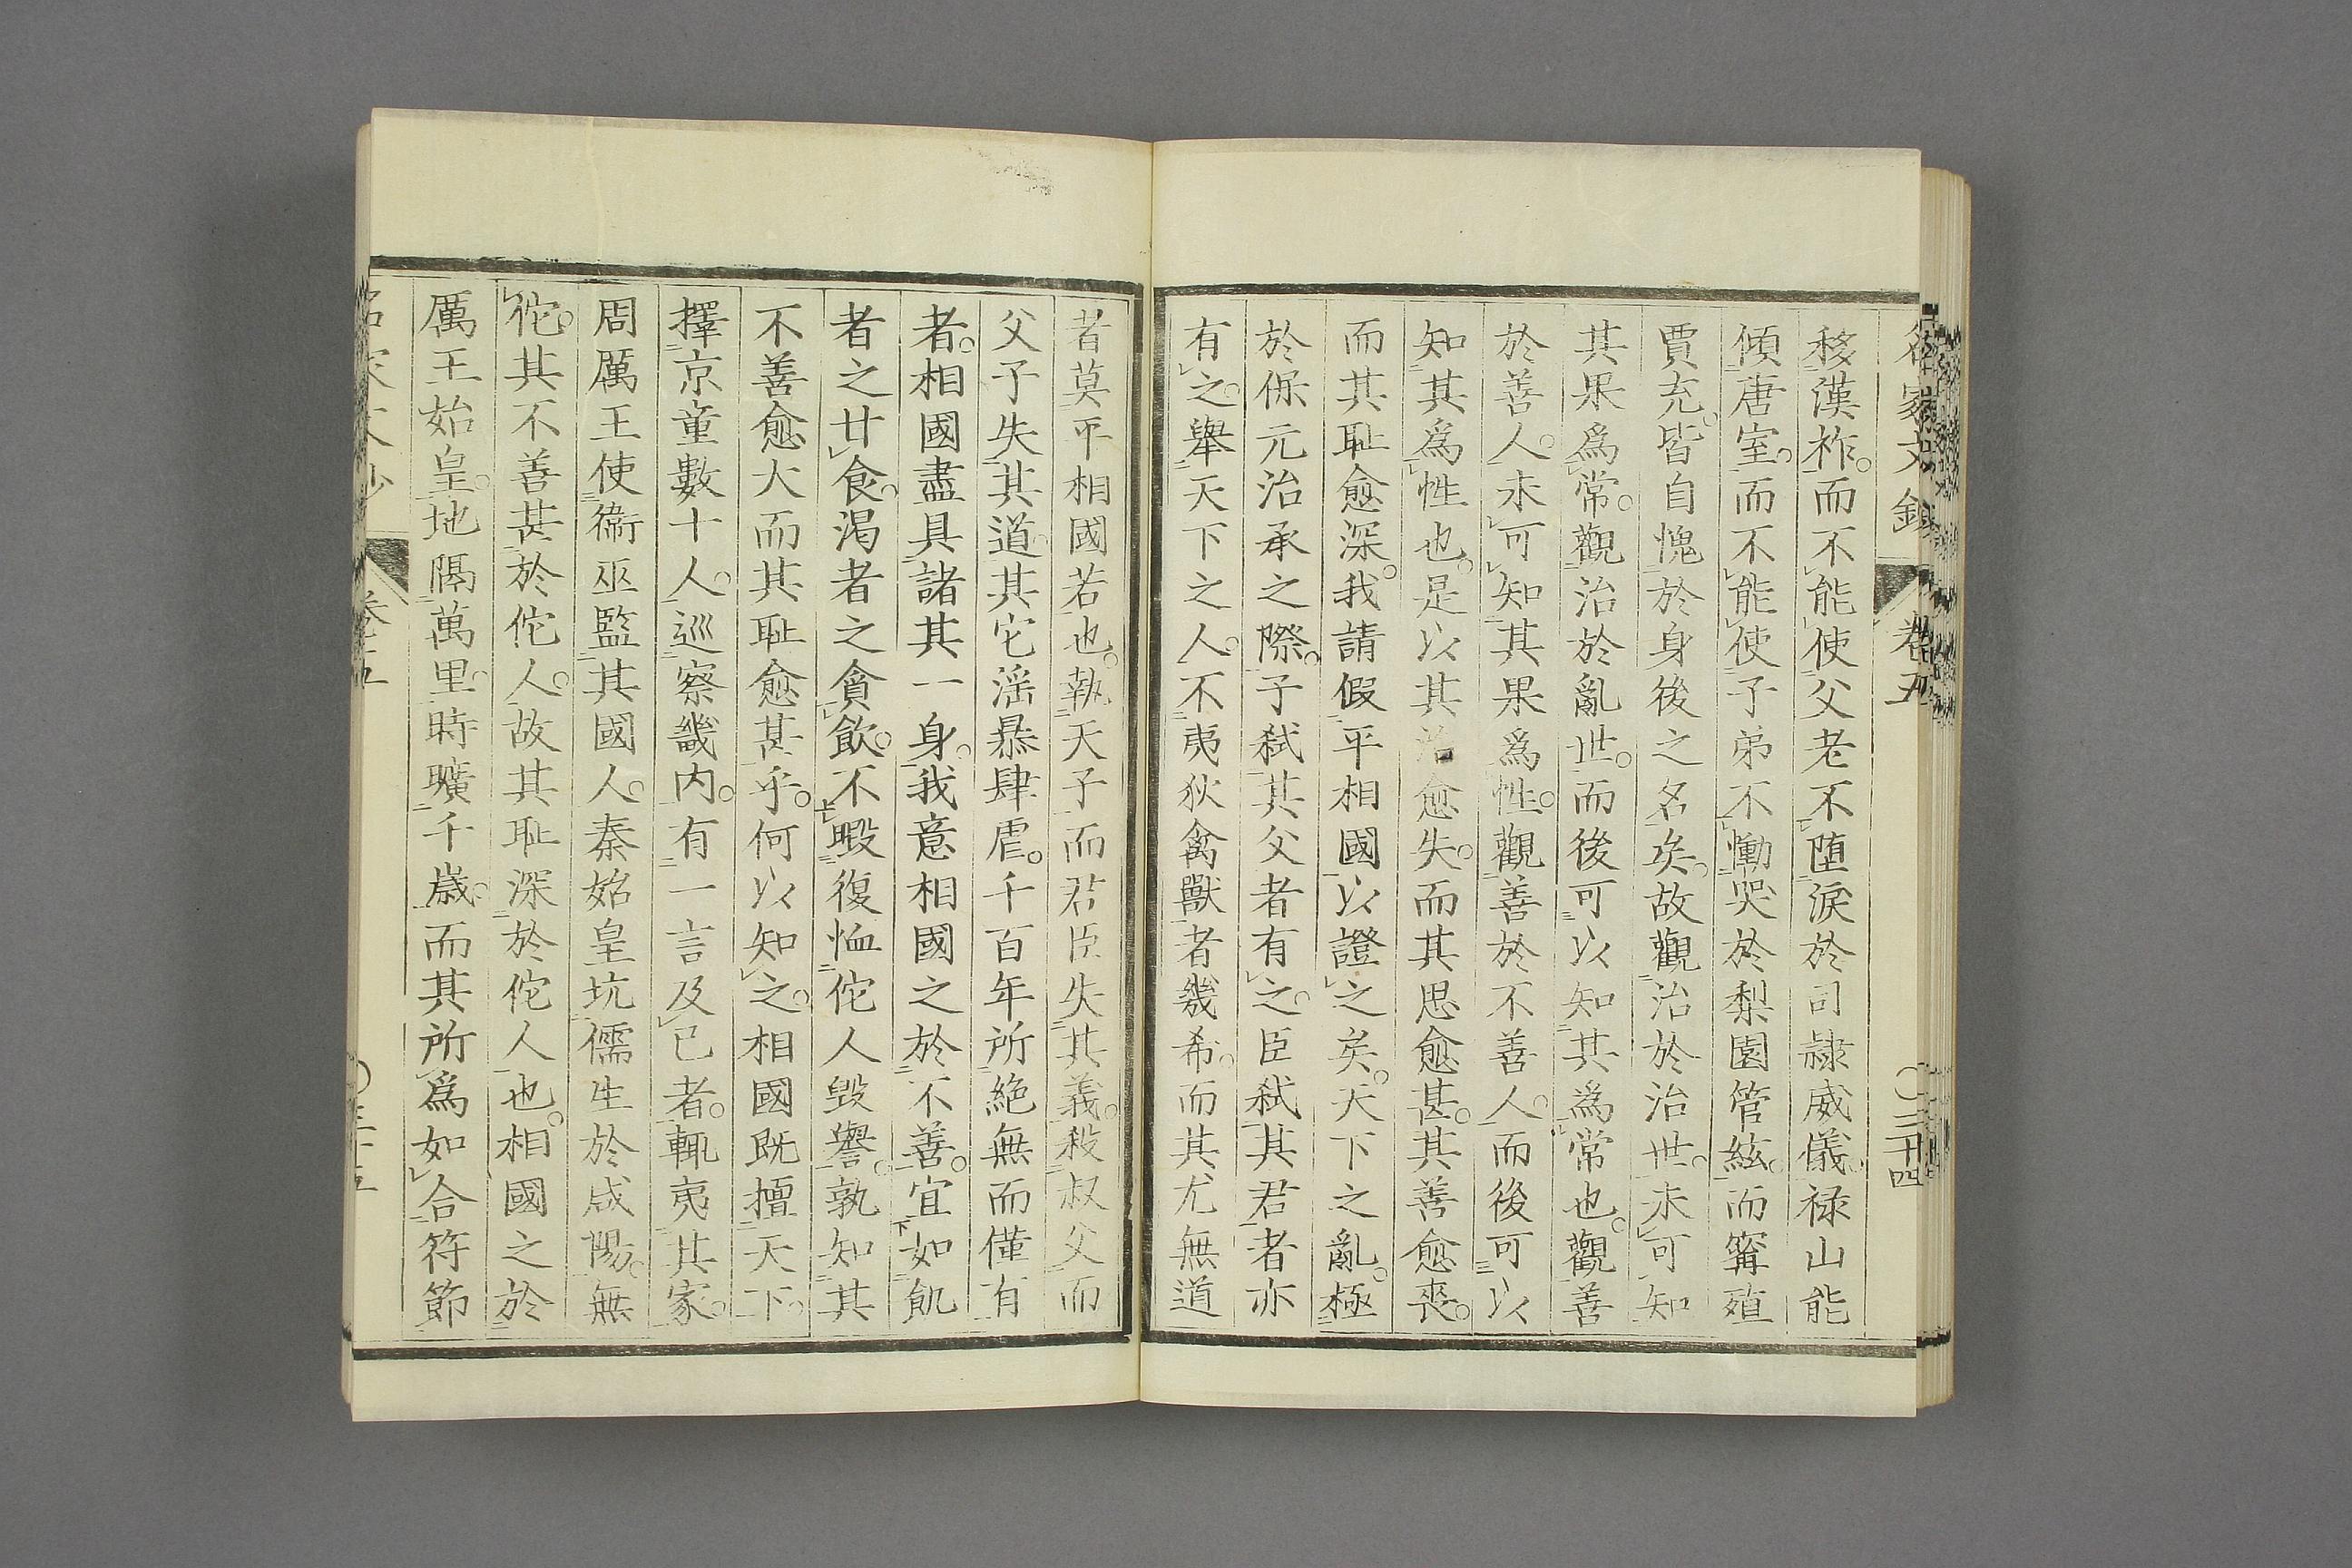 名家文鈔 卷五 〇三十四
移漢祚。而不能使父老不堕淚於司隷威儀。禄山能
傾唐室。而不能使子弟不慟哭於梨園管絃。而寗殖
賈充。皆自愧於身後之名矣。故觀治於治世。未可知
其果爲常。觀治於亂世。而後可以知其爲常也。觀善
於善人。未可知其果爲性。觀善於不善人。而後可以
知其爲性也。是以其治愈失。而其思愈甚。其善愈喪。
而其耻愈深。我請假平相國以證之矣。天下之亂。極
於保元治承之際。子弑其父者有之。臣弑其君者亦
有之。舉天下之人。不夷狄禽獸者幾希。而其尤無道
者莫平相國若也。執天子而君臣失其義。殺叔父而
父子失其道。其它滛暴肆虐。千百年所絶無而僅有
者。相國盡具諸其一身。我意相國之於不善。宜如飢
者之甘食。渇者之貪飲。不暇復恤佗人毀譽。孰知其
不善愈大而其耻愈甚乎。何以知之。相國既擅天下。
擇京童數十人。巡察畿内。有一言及已者。輙夷其家。
周厲王使衞巫監其國人。秦始皇坑儒生於咸陽。無
佗。其不善甚於佗人。故其耻深於佗人也。相國之於
厲王始皇。地隔萬里。時曠千歳。而其所爲如合符節
名家文鈔 卷五 〇三十五